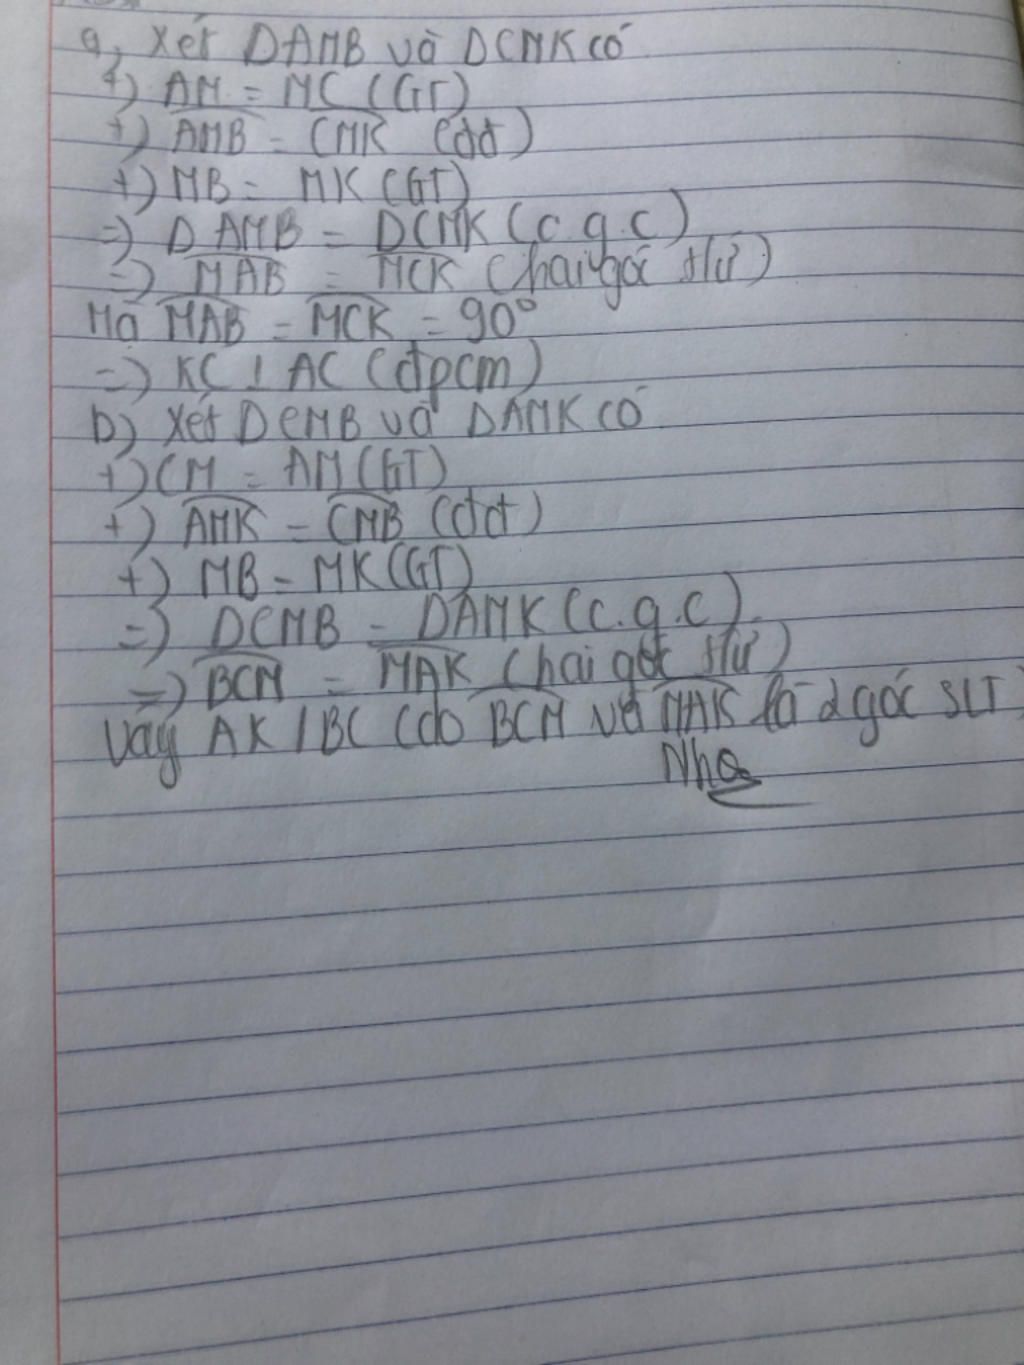 a, Xét DAMB và DCMK có
+) AM = MC (GT)
+) AMB = CMK (đđ)
+) MB = MK (GT)
=) DAMB = DCMK (c g.c)
=) MAB = MCK (hai góc t/ứ)
Mà MAB = MCK = 90°
=) KC ⊥ AC (đpcm)
b) Xét DCMB và DAMK có
+) CM = AM (GT)
+) AMK = CMB (đđ)
+) MB = MK (GT)
=) DCMB = DAMK (c.g.c).
=) BCM = MAK (hai góc t/ứ)
Vậy AK / BC (do BCM và MAK là 2 góc SLT)
Nha